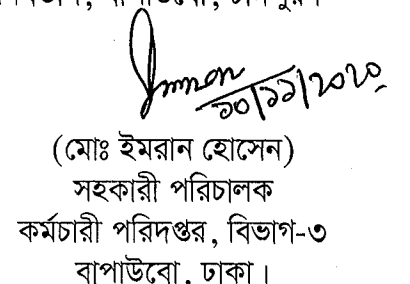 বাপাউবো,
Imran
১০/১১/২০২০
(মোঃ ইমরান হোসেন)
সহকারী পরিচালক
কর্মচারী পরিদপ্তর, বিভাগ-৩
বাপাউবো, ঢাকা।